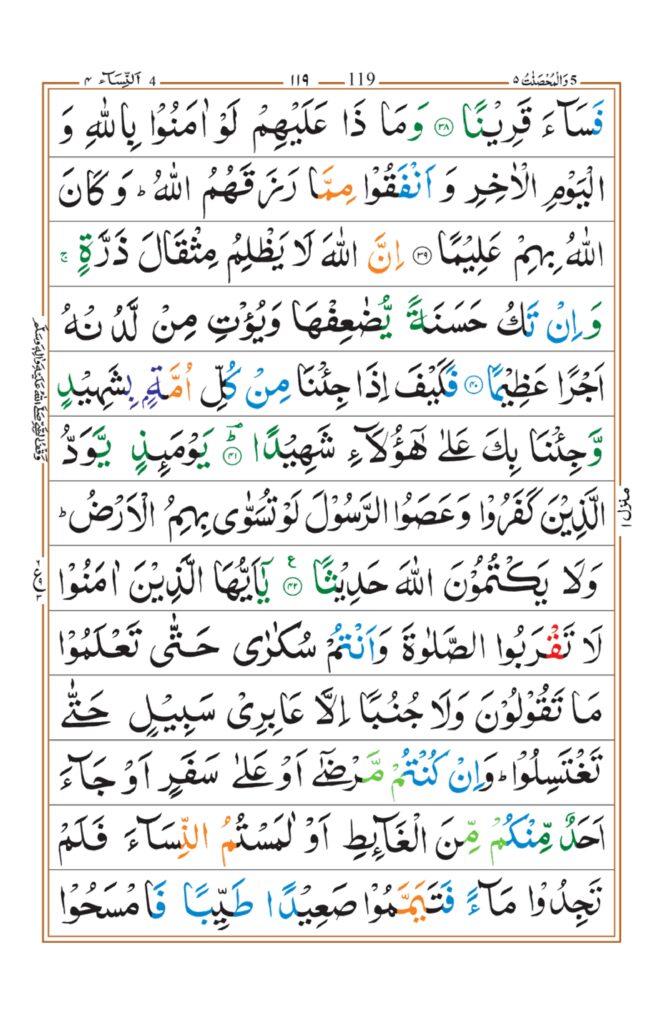 5 وَالْمُحْصَنٰتُ ٥ 119 ١١٩ 4 اَلنِّسَآء ٤
فَسَآءَ قَرِيْنًا ﴿۳۸﴾ وَمَا ذَا عَلَيْهِمْ لَوْ اٰمَنُوْا بِاللّٰهِ وَ
الْيَوْمِ الْاٰخِرِ وَ اَنْفَقُوْا مِمَّا رَزَقَهُمُ اللّٰهُ ؕ وَ كَانَ
اللّٰهُ بِهِمْ عَلِيْمًا ﴿۳۹﴾ اِنَّ اللّٰهَ لَا يَظْلِمُ مِثْقَالَ ذَرَّةٍ ۚ
وَاِنْ تَكُ حَسَنَةً يُّضٰعِفْهَا وَيُؤْتِ مِنْ لَّدُنْهُ
اَجْرًا عَظِيْمًا ﴿۴۰﴾ فَكَيْفَ اِذَا جِئْنَا مِنْ كُلِّ اُمَّةٍۭ بِشَهِيْدٍ
وَّجِئْنَا بِكَ عَلٰى هٰٓؤُلَآءِ شَهِيْدًا ﴿۴۱﴾ؕ يَوْمَئِذٍ يَّوَدُّ
الَّذِيْنَ كَفَرُوْا وَعَصَوُا الرَّسُوْلَ لَوْ تُسَوّٰى بِهِمُ الْاَرْضُ ؕ
وَلَا يَكْتُمُوْنَ اللّٰهَ حَدِيْثًا ﴿۴۲﴾ ع يٰٓاَيُّهَا الَّذِيْنَ اٰمَنُوْا
لَا تَقْرَبُوا الصَّلٰوةَ وَاَنْتُمْ سُكَارٰى حَتّٰى تَعْلَمُوْا
مَا تَقُوْلُوْنَ وَلَا جُنُبًا اِلَّا عَابِرِىْ سَبِيْلٍ حَتّٰى
تَغْتَسِلُوْا ؕ وَاِنْ كُنْتُمْ مَّرْضٰٓى اَوْ عَلٰى سَفَرٍ اَوْ جَآءَ
اَحَدٌ مِّنْكُمْ مِّنَ الْغَآئِطِ اَوْ لٰمَسْتُمُ النِّسَآءَ فَلَمْ
تَجِدُوْا مَآءً فَتَيَمَّمُوْا صَعِيْدًا طَيِّبًا فَامْسَحُوْا
منزل ١